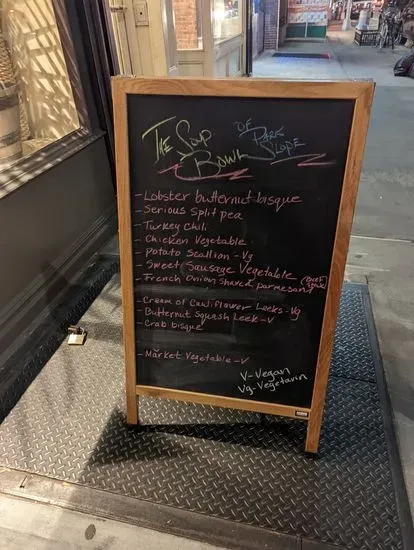 The Soup Bowl of Park Slope
- Lobster butternut bisque
- Serious Split pea
- Turkey Chili
- Chicken Vegetable
- Potato Scallion - Vg
- Sweet Sausage Vegetable
- French Onion shaved parmesano (Beef Stock)
- Cream of Cauliflower Leeks - Vg
- Butternut Squash Leek - V
- Crab bisque
- Market Vegetable - V
V - Vegan
Vg - Vegetarin